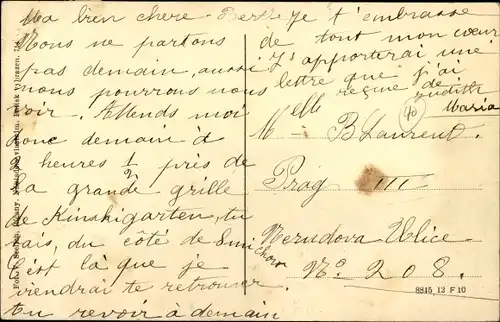 Ma bien chère Berthe
Nous ne partons
pas demain, aussi
nous pourrons nous
voir. Attends moi
donc demain à
2 heures 1/2 près de
la grande grille
de Kinskigarten, tu
sais, du côté de Smichow
c'est là que je
viendrai te retrouver.
Au revoir à demain
je t'embrasse
de tout mon cœur
J'apporterai une
lettre que j'ai
reçue de
Maria
40
Melle B Laurent.
Prag III
Nerudova Ulice
No. 208.
8815 12 F 10